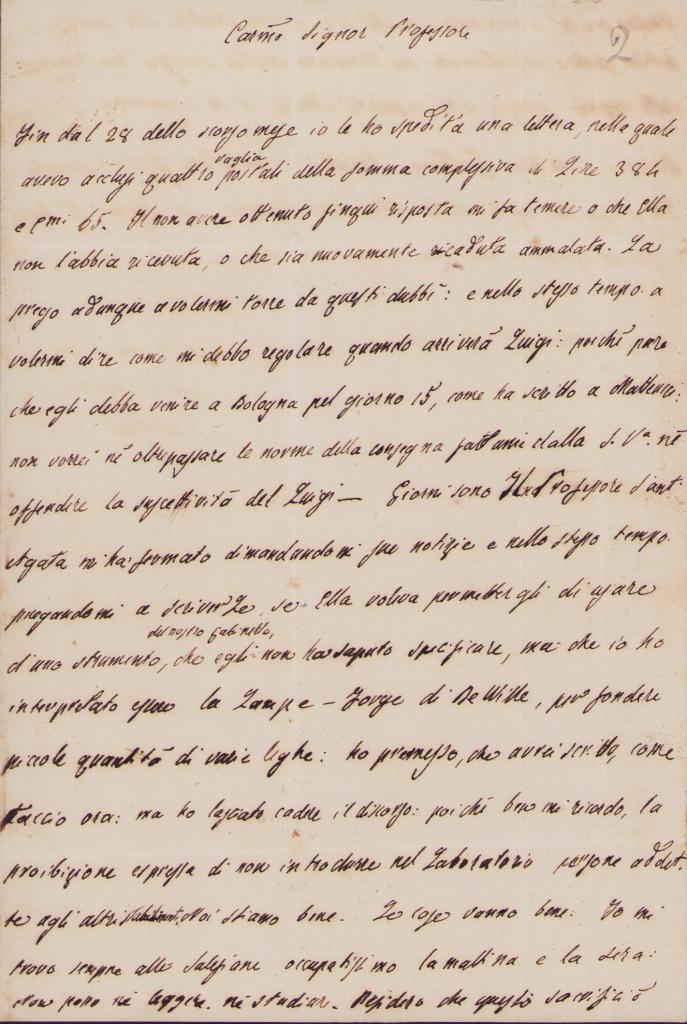 Carmo Signor Professore
2
Fin dal 28 dello scorso mese io le ho spedita una lettera, nella quale
avevo acclusi quattro vaglia postali della somma complessiva di Lire 384
e cmi 65. Il non avere ottenuto finqui risposta mi fa temere o che Ella
non l'abbia ricevuta, o che sia nuovamente ricaduta ammalata. La
prego adunque a volermi torre da questi dubbi: e nello stesso tempo a
volermi dire come mi debbo regolare quando arriverà Luigi: poichè pare
che egli debba venire a Bologna pel giorno 15, come ha scritto a Matteucci:
non vorrei nè oltrepassare le norme della consegna fattami dalla S. Va. nè
offendere la suscettività del Luigi — Giorni sono Il Professore Sant'
Agata mi ha fermato dimandandomi sue notizie e nello stesso tempo
pregandomi a scriverLe, se Ella voleva permettergli di usare
d'uno strumento, del nostro Gabinetto, che egli non ha saputo specificare, ma che io ho
interpretato essere la Lampe-Forge di Deville, per fondere
piccole quantità di varie leghe: ho promesso, che avrei scritto, come
faccio ora: ma ho lasciato cadere il discorso: poichè ben mi ricordo, la
proibizione espressa di non introdurre nel Laboratorio persone addet-
te agli altri Noi stiamo bene. Le cose vanno bene. Io mi
trovo sempre alle Salesiane occupatissimo la mattina e la sera:
non posso nè leggere nè studiare. Desidero che questo sacrificio